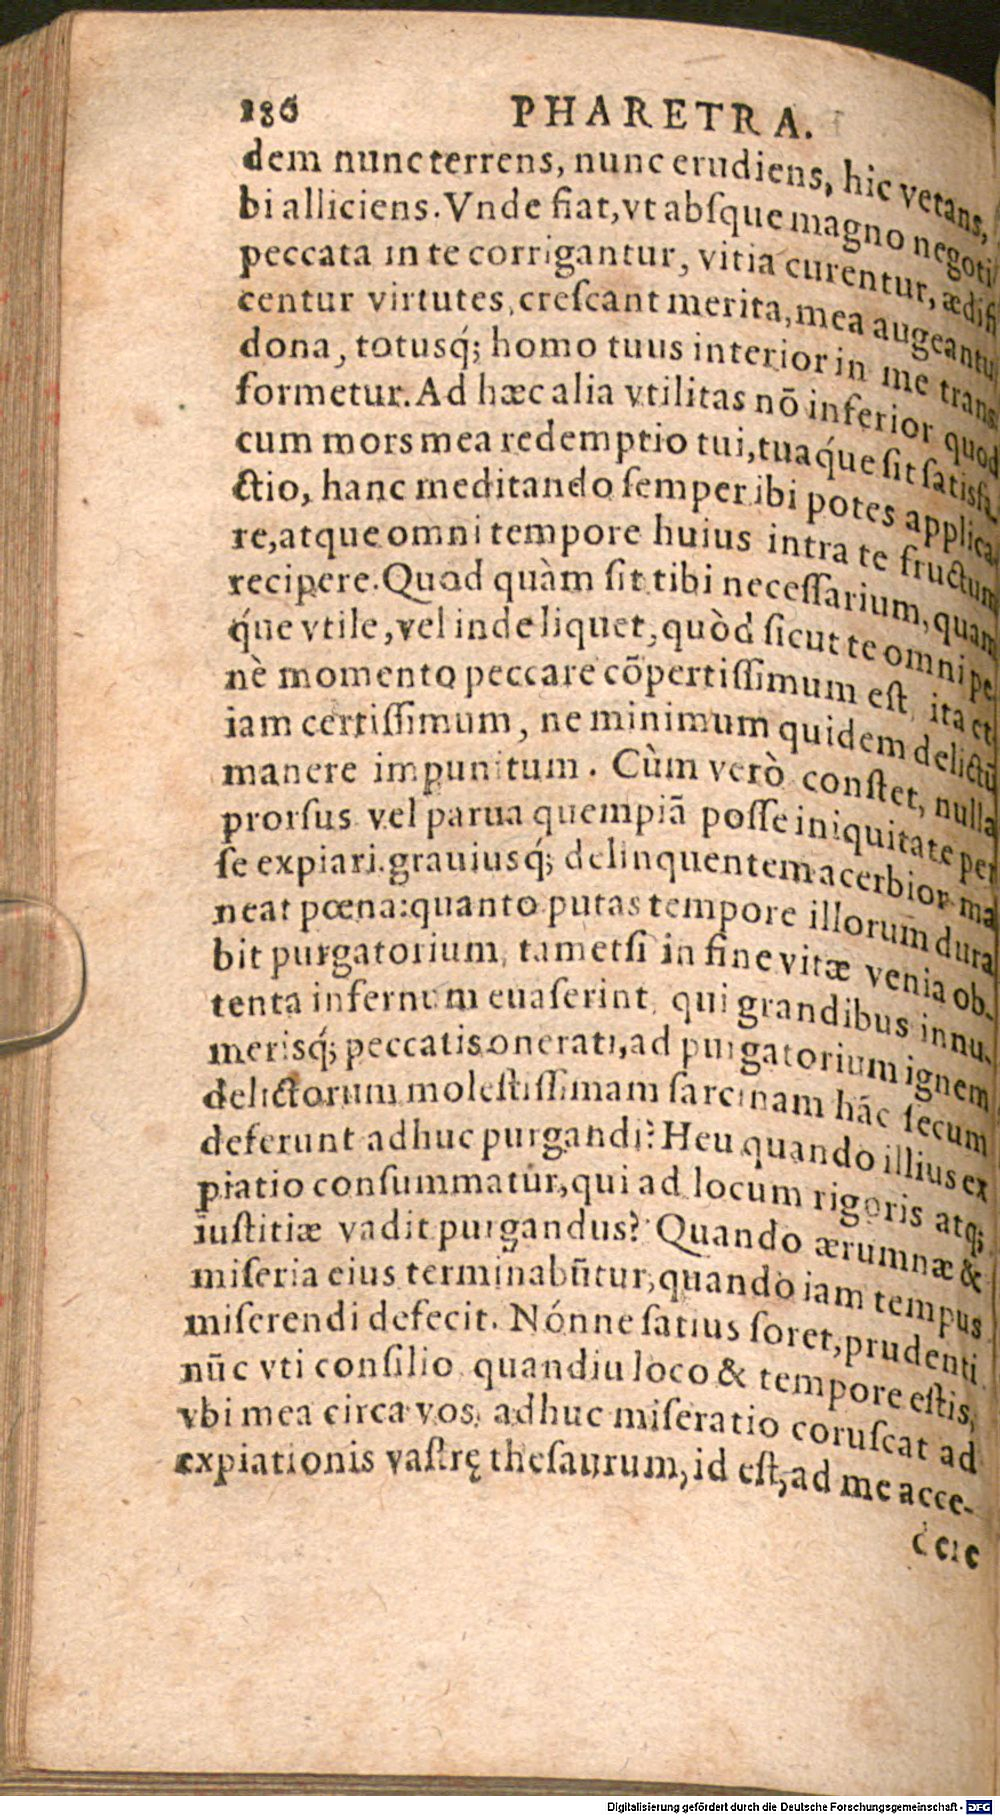 186 PHARETRA.
dem nunc terrens, nunc erudiens, hic vetans,
bi alliciens. Vnde fiat, vt absque magno negoti
peccata in te corrigantur, vitia curentur, ædifi
centur virtutes, crescant merita, mea augeantu
dona, totusq́; homo tuus interior in me trans
formetur. Ad hæc alia vtilitas nō inferior quod
cum mors mea redemptio tui, tuaq́ue sit satisfa
ctio, hanc meditando semper ibi potes applica
re, atque omni tempore huius intra te fructum
recipere. Quod quàm sit tibi necessarium, quam
q́ue vtile, vel inde liquet, quòd sicut te omni pe
nè momento peccare cōpertissimum est, ita et
iam certissimum, ne minimum quidem delictū
manere impunitum. Cùm verò constet, nulla
prorsus vel parua quempiā posse iniquitate per
se expiari. grauiusq́; delinquentem acerbior ma
neat pœna: quanto putas tempore illorum dura
bit purgatorium, tametsi in fine vitæ venia ob-
tenta infernum euaserint, qui grandibus innu-
merisq́; peccatis onerati, ad purgatorium ignem
delictorum molestissimam sarcinam hāc secum
deferunt adhuc purgandi? Heu quando illius ex
piatio consummatur, qui ad locum rigoris atq;
iustitiæ vadit purgandus? Quando ærumnæ &
miseria eius terminabūtur, quando iam tempus
miserendi defecit. Nónne satius foret, prudenti
nūc vti consilio quandiu loco & tempore estis,
vbi mea circa vos, adhuc miseratio coruscat ad
expiationis vastrę thesaurum, id est, ad me acce-
dere
Digitalisierung gefördert durch die Deutsche Forschungsgemeinschaft - DFG